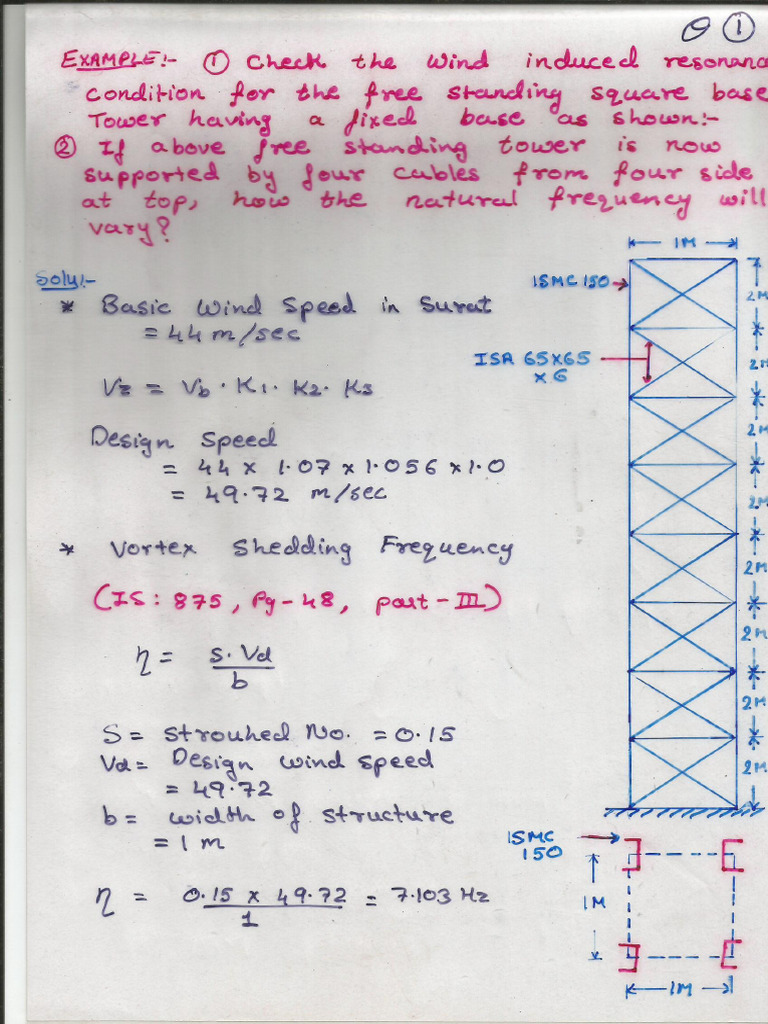 ① 
EXAMPLE:- ① Check the wind induced resonanc
condition for the free standing square base
Tower having a fixed base as shown:-
② If above free standing tower is now
supported by four cables from four side
at top, how the natural frequency will
vary?
1M
Soly:-
ISMC 150
* Basic wind speed in Surat
= 44 m/sec
2M
ISA 65x65
x 6
2M
Vz = Vb . K1 . K2 . K3
2M
Design Speed
= 44 x 1.07 x 1.056 x 1.0
= 49.72 m/sec
2M
* Vortex Shedding Frequency
2M
(IS: 875, Pg-48, part-III)
2M
η = S. Vd
b
2M
S = strouhed No. = 0.15
Vd = Design wind speed
= 49.72
2M
b = width of structure
= 1 m
ISMC
150
η = 0.15 x 49.72 = 7.103 Hz
1
1M
1M